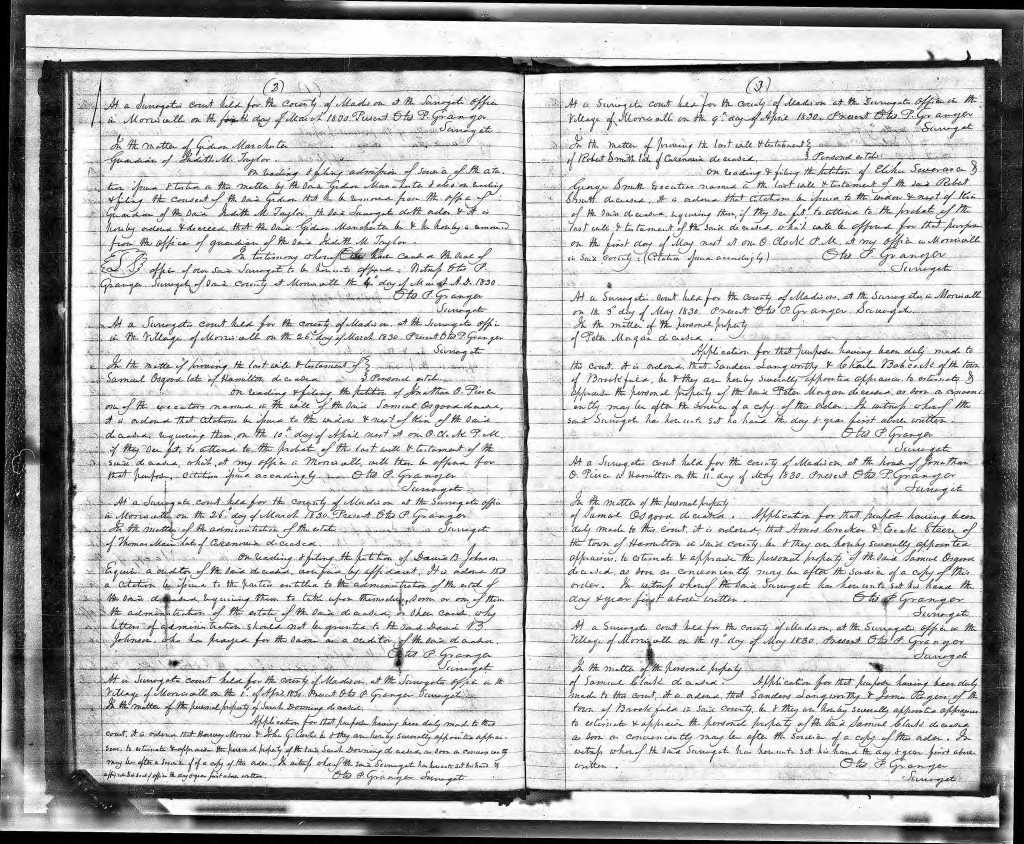 (2)
At a Surrogates court held for the County of Madison at the Surrogate Office
in Morrisvill on the day of March 1830. Present Otis P. Granger
Surrogate
In the matter of Gideon Manchester
Guardian of Judith M. Taylor
On reading & filing admission of service of the cita-
tion issued & citation in this matter by the said Gideon Manchester & also on reading
& filing the consent of the said Gideon that he be removed from the office of
Guardian of the said Judith M. Taylor. The said Surrogate doth order & it is
hereby ordered & decreed that the said Gideon Manchester be & he hereby is removed
from the office of guardian of the said Judith M. Taylor.
In testimony whereof we have caused the seal of
L S office of our said Surrogate to be hereunto affixed. Witness Otis P.
Granger Surrogate of said County at Morrisvill the day of March A.D. 1830
Otis P. Granger
Surrogate
At a Surrogates court held for the county of Madison, at the Surrogates office
in the Village of Morrisvill on the 26th day of March 1830 Present Otis P. Granger
Surrogate
In the matter of proving the last will & testament of
Samuel Osgood late of Hamilton deceased. Personal estate
On reading & filing the petition of Jonathan O. Pierce
one of the executors named in the will of the said Samuel Osgood deceased,
it is ordered that citations be issued to the widow & next of kin of the said
deceased, requiring them, on the 10th day of April next at one O.Clock P.M.
if they see fit, to attend to the probate of the last will & testament of the
said deceased, which, at my office in Morrisvill, will then be offered for
that purpose, Citation issued accordingly. Otis P. Granger
Surrogate
At a Surrogate court held for the County of Madison at the Surrogate office
in Morrisvill on the 26th day of March 1830 Present Otis P. Granger
In the matter of the administration of the estate Surrogate
of Thomas Main late of Cazenovia deceased
On reading & filing the petition of David B. Johnson
Esquire a creditor of the said deceased, verified by affidavit. It is ordered that
a citation be issued to the parties entitled to the administration of the estate of
the said deceased, requiring them to take upon themselves, some or one of them
the administration of the estate of the said deceased, or shew cause why
letters of administration should not be granted to the said David B.
Johnson, who has prayed for the same as a creditor of the said deceased
Otis P. Granger
Surrogate
At a Surrogate court held for the County of Madison, at the Surrogate office in the
Village of Morrisvill on the 1st of April 1830. Present Otis P. Granger Surrogate
In the matter of the personal property of Sarah Downing deceased.
Application for that purpose having been duly made to this
court, it is ordered that Harvey Morris & John G. Curtis be & they are hereby severally appointed apprai-
sers, to estimate & appraise the personal property of the said Sarah Downing deceased, as soon as conveniently
may be after a service of a copy of this order. In witness whereof the said Surrogate has hereunto set his hand &
affixed his seal of office the day & year first above written. Otis P. Granger Surrogate
(3)
At a Surrogate court held for the County of Madison at the Surrogate Office in the
Village of Morrisvill on the 9th day of April 1830. Present Otis P. Granger
Surrogate
In the matter of proving the last will & testament
of Robert Smith late of Cazenovia deceased. Personal estate
On reading & filing the petition of Elihu Severance &
George Smith Executors named in the last will & testament of the said Robert
Smith deceased, it is ordered that citations be issued to the widow & next of kin
of the said deceased, requiring them, if they see fit, to attend to the probate of the
last will & testament of the said deceased, which will be offered for that purpose
on the first day of May next at one O.Clock P.M. at my office in Morrisvill
in said County. (Citation issued accordingly) Otis P. Granger
Surrogate
At a Surrogate court held for the county of Madison, at the Surrogates in Morrisvill
on the 3d day of May 1830. Present Otis P. Granger Surrogate.
In the matter of the personal property
of Peter Morgan deceased.
Application for that purpose having been duly made to
this court. It is ordered, that Sanders Langworthy & Charles Babcock of the town
of Brookfield, be & they are hereby severally appointed appraisers, to estimate &
appraise the personal property of the said Peter Morgan deceased, as soon as conveni-
ently may be after the service of a copy of this order. In witness whereof the
said Surrogate has hereunto set his hand the day & year first above written.
Otis P. Granger
Surrogate
At a Surrogate court held for the county of Madison at the house of Jonathan
O. Pierce in Hamilton on the 11th day of May 1830. Present Otis P. Granger
Surrogate
In the matter of the personal property
of Samuel Osgood deceased. Application for that purpose having been
duly made to this court, it is ordered, that Amos Crocker & M. Steere of
the town of Hamilton in said county, be & they are hereby severally appointed
appraisers, to estimate & appraise the personal property of the said Samuel Osgood
deceased, as soon as conveniently may be after the service of a copy of this
order. In witness whereof the said Surrogate has hereunto set his hand the
day & year first above written. Otis P. Granger
Surrogate
At a Surrogate court held for the county of Madison, at the Surrogate office in the
Village of Morrisvill on the 19th day of May 1830. Present Otis P. Granger
Surrogate
In the matter of the personal property
of Samuel Clark deceased. Application for that purpose having been duly
made to this court, it is ordered, that Sanders Langworthy & of the
town of Brookfield in said county, be & they are hereby severally appointed appraisers
to estimate & appraise the personal property of the said Samuel Clark deceased
as soon as conveniently may be after the service of a copy of this order. In
witness whereof the said Surrogate has hereunto set his hand the day & year first above
written. Otis P. Granger
Surrogate